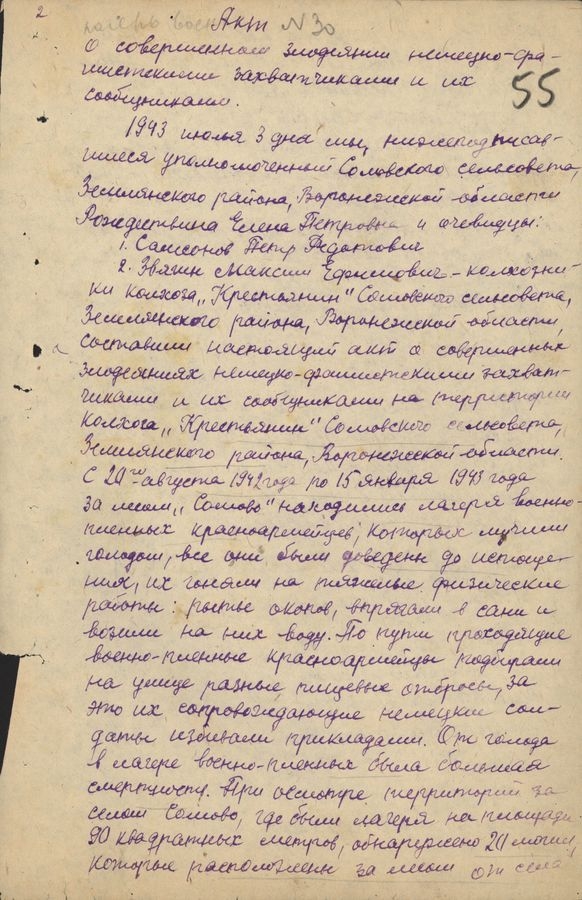 2
лагерь воен
Акт № 30
О совершенном злодеянии немецко-фа-
шистскими захватчиками и их
сообщниками.
55
1943 июля 3 дня мы, нижеподписав-
шиеся уполномоченный Сомовского сельсовета,
Землянского района, Воронежской области
Рождествина Елена Петровна и очевидцы:
1. Самсонов Петр Федотович
2. Звягин Максим Ефимович - колхозни-
ки колхоза „Крестьянин" Сомовского сельсовета,
Землянского района, Воронежской области,
составили настоящий акт о совершенных
злодеяниях немецко-фашистскими захват-
чиками и их сообщниками на территории
колхоза „Крестьянин" Сомовского сельсовета,
Землянского района, Воронежской области.
С 20го августа 1942 года по 15 января 1943 года
за селом „Сомово" находились лагеря военно-
пленных красноармейцев, которых мучили
голодом, все они были доведены до истоще-
ния, их гоняли на тяжелые физические
работы: рытье окопов, впрягали в сани и
возили на них воду. По пути проходящие
военно-пленные красноармейцы подбирали
на улице разные пищевые отбросы, за
это их сопровождающие немецкие сол-
даты избивали прикладами. От голода
в лагере военно-пленных была большая
смертность. При осмотре территорий за
селом Сомово, где были лагеря на площади
90 квадратных метров, обнаружено 20 могил,
которые расположены за селом от села